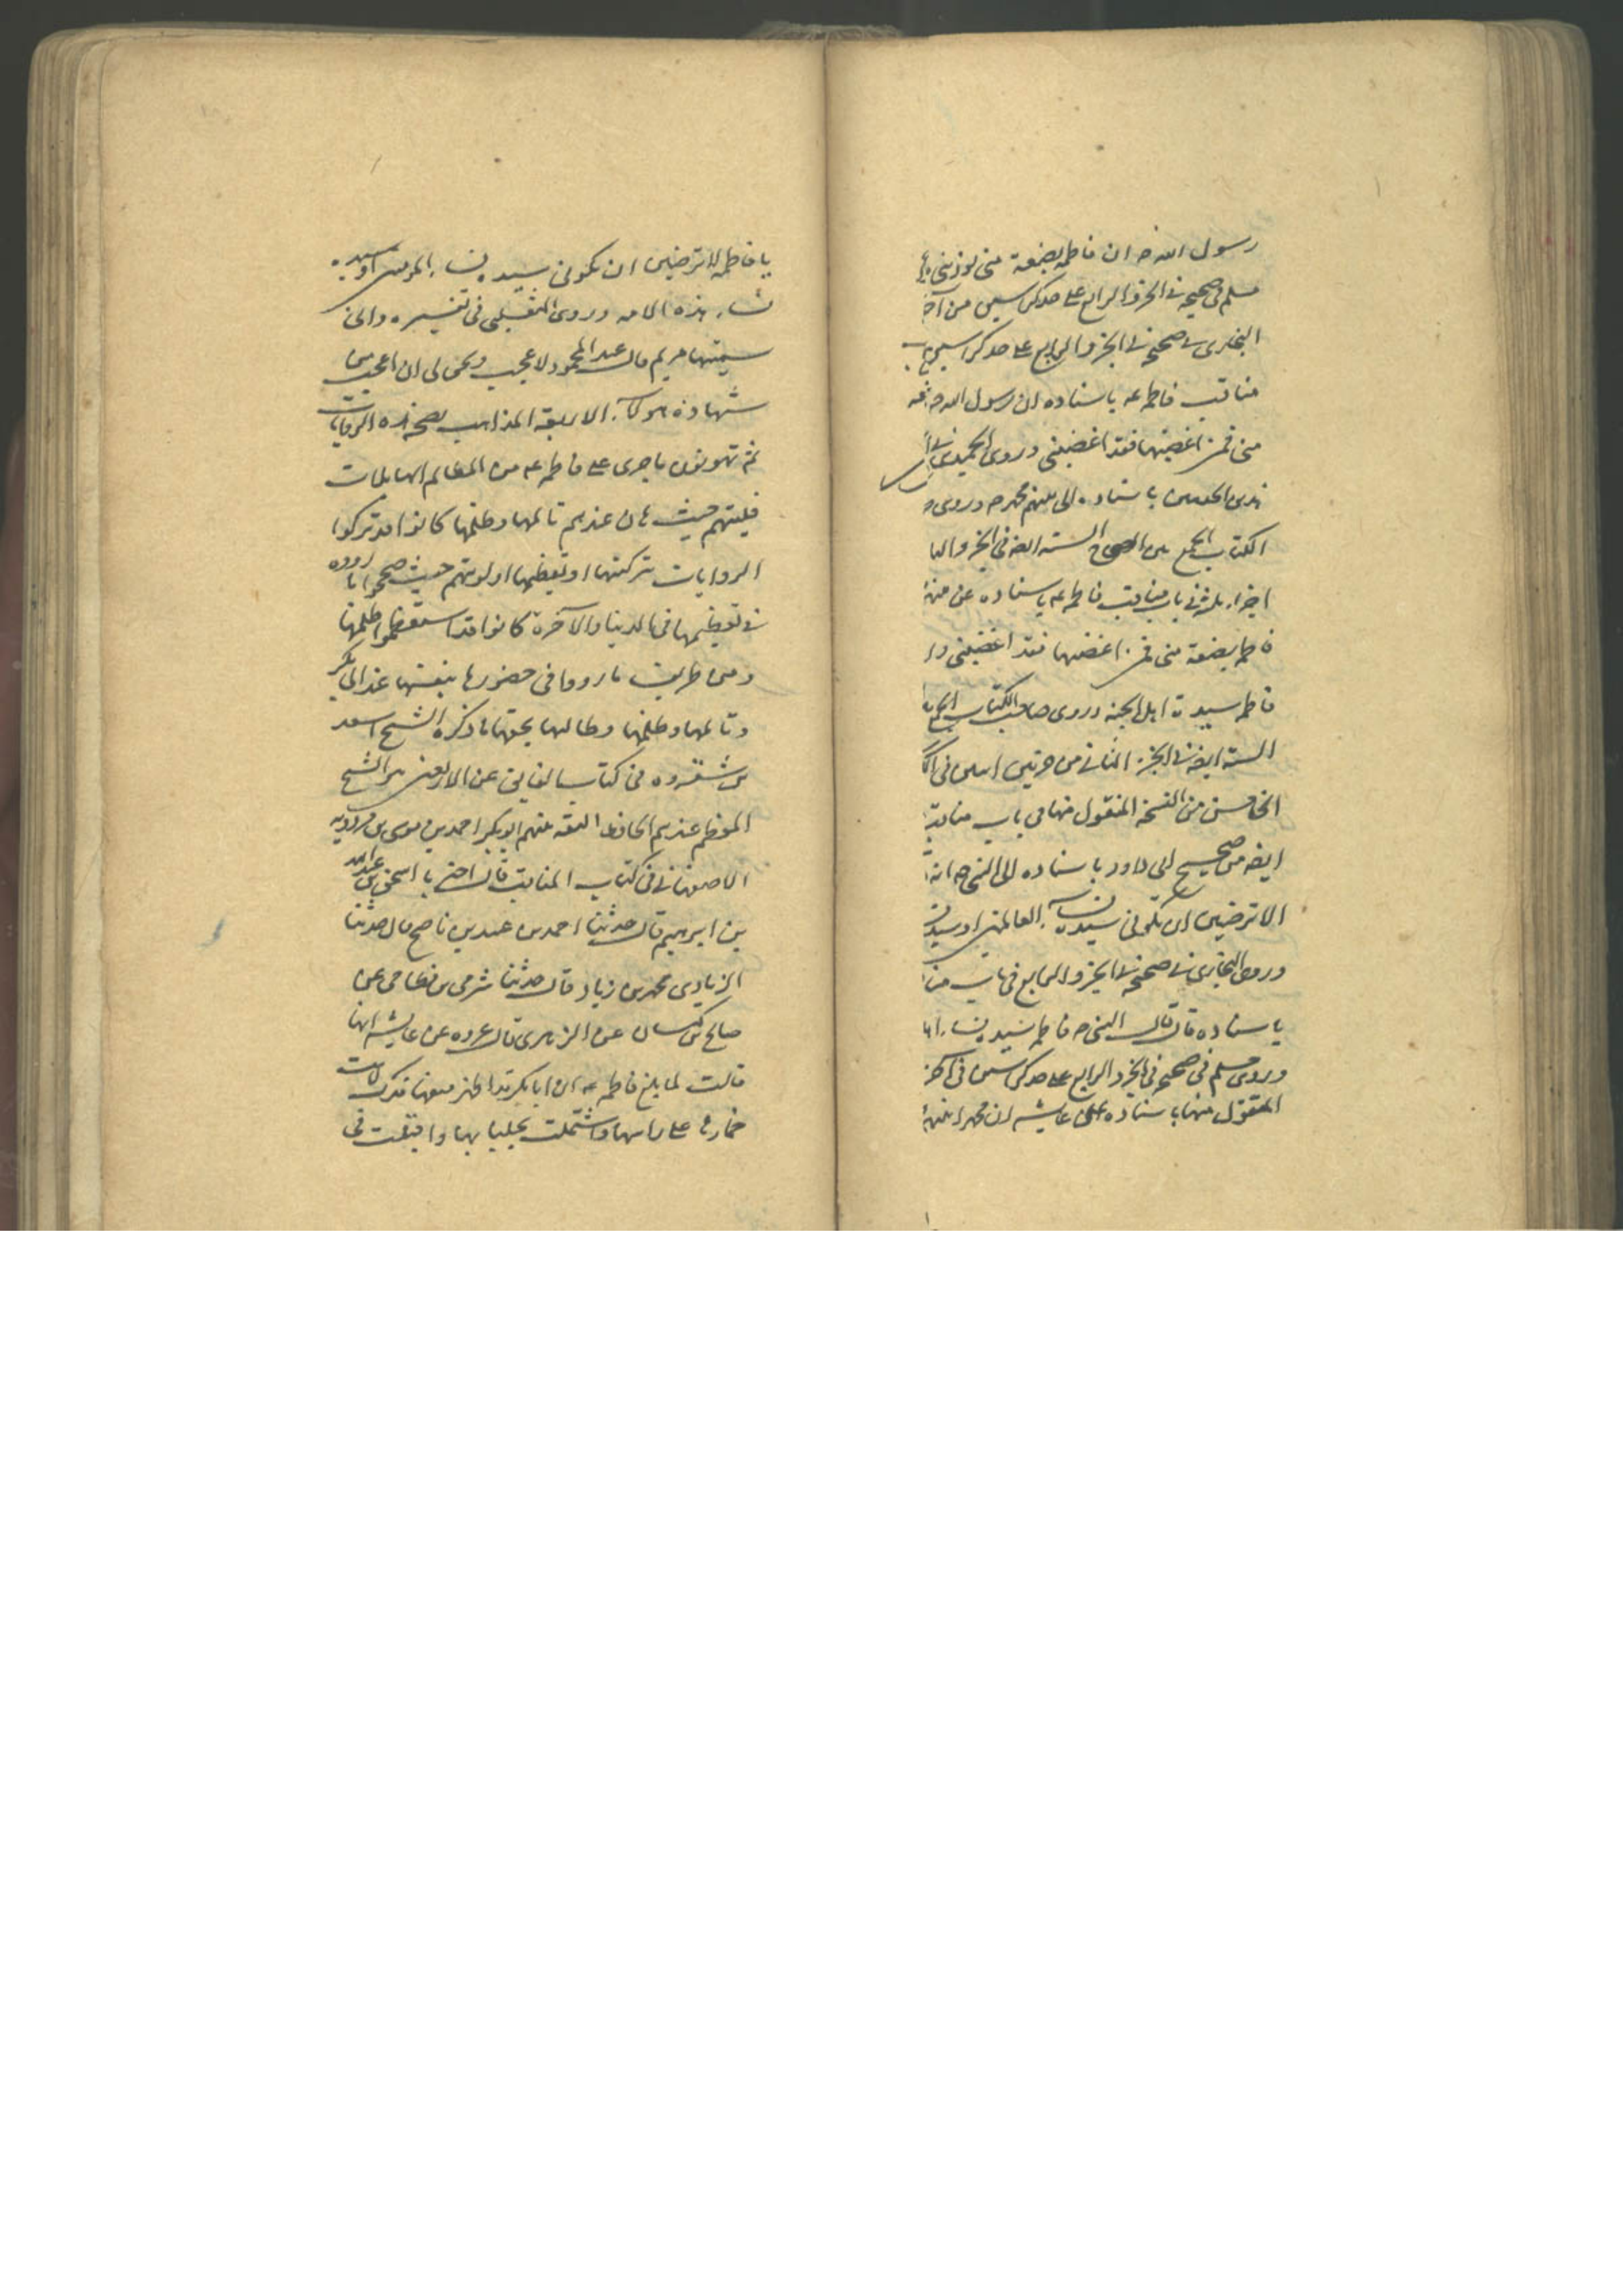 رسول الله ص ان فاطمه بضعة منى يوذينى
مسلم فى صحيحه فى الجزو الرابع على حد كراسين من آخر
البخارى فى صحيحه فى الجزو الرابع على حد كراسين
مناقب فاطمه ع باسناده ان رسول الله ص
منى فمن اغضبها فقد اغضبنى وروى الحميدى فى
باسناده الى نبيهم محمد ص وروى
الكتاب الجمع بين الصحاح السته ايضه فى الجزو
اجزاء ثلثه فى باب مناقب فاطمه ع باسناده عن
فاطمه بضعة منى فمن اغضبها فقد اغضبنى و
فاطمه سيدة اهل الجنه وروى صاحب الكتاب الجمع
السته ايضه فى الجزء الثانى من جزئين اثنين فى
الخامس من النسخة المنقول منها من باب مناقب
ايضه من صحيح ابى داود باسناده الى النبى ص
الا ترضين ان تكونى سيدة نساء العالمين او سيدة
وروى البخارى فى صحيحه فى الجزو الرابع فى باب
باسناده قال قال النبى ص فاطمه سيدة نساء
وروى مسلم فى صحيحه فى الجزو الرابع على حد كراسين فى آخر
المنقول منها باسناده الى عايشه ان محمدا نبيهم
يا فاطمه الا ترضين ان تكونى سيدة نساء المومنين او سيدة
نساء هذه الامه وروى الثعلبى فى تفسيره وانى
سميتها مريم قال عبد المحمود لا عجيب ويحق لى ان اعجب من
شهادة هولاء الاربعة المذاهب بصحة هذه الروايات
ثم تهوينون ما جرى على فاطمه ع من المظالم الهايلات
فليتهم حيث هان عندهم تالمها وظلمها كانوا قد تركوا
الروايات بتزكيتها او تعظيمها او ليتهم حيث صححوا ما رووه
فى تعظيمها فى الدنيا والآخرة كانوا قد استعظموا ظلمها
ومن طريف ما رووا فى حضورها بنفسها عند ابى بكر
وتالمها وظلمها وطالبها بحقها ما ذكره الشيخ اسعد
بن شقروه فى كتاب الفايق عن الاربعين عن الشيخ
المعظم عندهم الحافظ الثقه بينهم ابو بكر احمد بن موسى بن مردويه
الاصفهانى فى كتاب المناقب قال اخبرنا اسحق بن عبد الله
بن ابرهيم قال حدثنا احمد بن عبيد بن ناصح قال حدثنا
الزيادى محمد بن زياد قال حدثنا شرقى بن قطامى عن
صالح بن كيسان عن الزهرى قال عروه عن عايشه انها
قالت لما بلغ فاطمه ع ان ابا بكر قد اظهر منعها فدك لاثت
خمارها على راسها واشتملت بجلبابها واقبلت فى